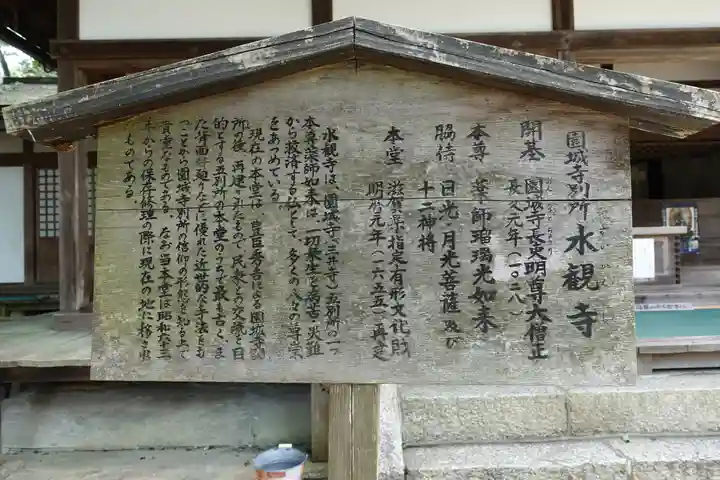 園城寺別所 水観寺
開基 園城寺長吏明尊大僧正
長久元年(一〇二八)
本尊 薬師瑠璃光如来
脇侍 日光・月光菩薩及び
十二神将
本堂 滋賀県指定有形文化財
明暦元年(一六五五)再建
水観寺は、園城寺(三井寺)五別所の一つ
本尊薬師如来は、一切衆生を病苦・災難
から救済する仏として、多くの人々の尊崇
をあつめている。
現在の本堂は、豊臣秀吉による園城寺
所の後、再建されたもので、民衆との交流を目
的とする五別所の本堂のうちで最も古く、ま
た背面
廻りなどに優れた近世的な手法をも
つことから園城寺別所の信仰の形態を知る上で
貴重なものである。なお当本堂は昭和六十三
年からの保存修理の際に現在の地に移され
たものである。